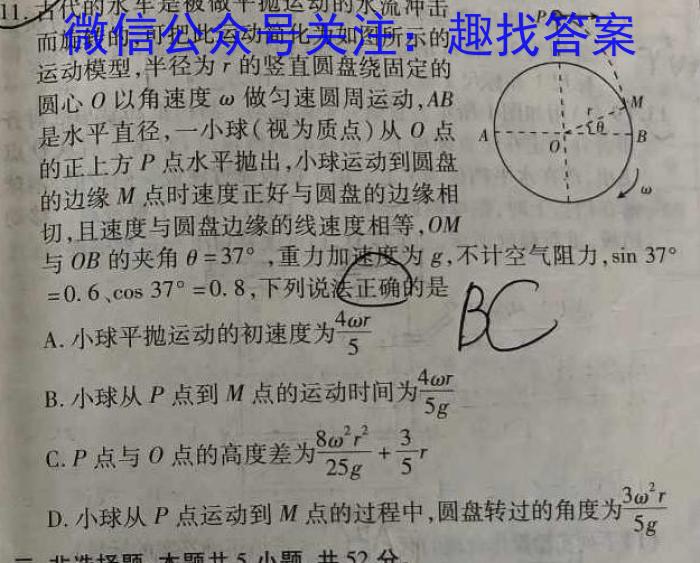 11. 古代的水车是被做平抛运动的水流冲击
微信公众号关注：趣找答案
而旋转的，可把此运动简化为如图所示的
运动模型,半径为 r 的竖直圆盘绕固定的
圆心 O 以角速度 ω 做匀速圆周运动,AB
是水平直径,一小球(视为质点)从 O 点
的正上方 P 点水平抛出,小球运动到圆盘
的边缘 M 点时速度正好与圆盘的边缘相
切,且速度与圆盘边缘的线速度相等,OM
与 OB 的夹角 θ = 37° ,重力加速度为 g,不计空气阻力,sin 37°
= 0. 6、cos 37° = 0. 8,下列说法正确的是
P
M
r
θ
A
O
B
ω
BC
A. 小球平抛运动的初速度为4ωr/5
B. 小球从 P 点到 M 点的运动时间为4ωr/5g
C. P 点与 O 点的高度差为8ω²r²/25g + 3/5 r
D. 小球从 P 点运动到 M 点的过程中,圆盘转过的角度为3ω²r/5g
二、非选择题:本题共 5 小题,共 52 分。